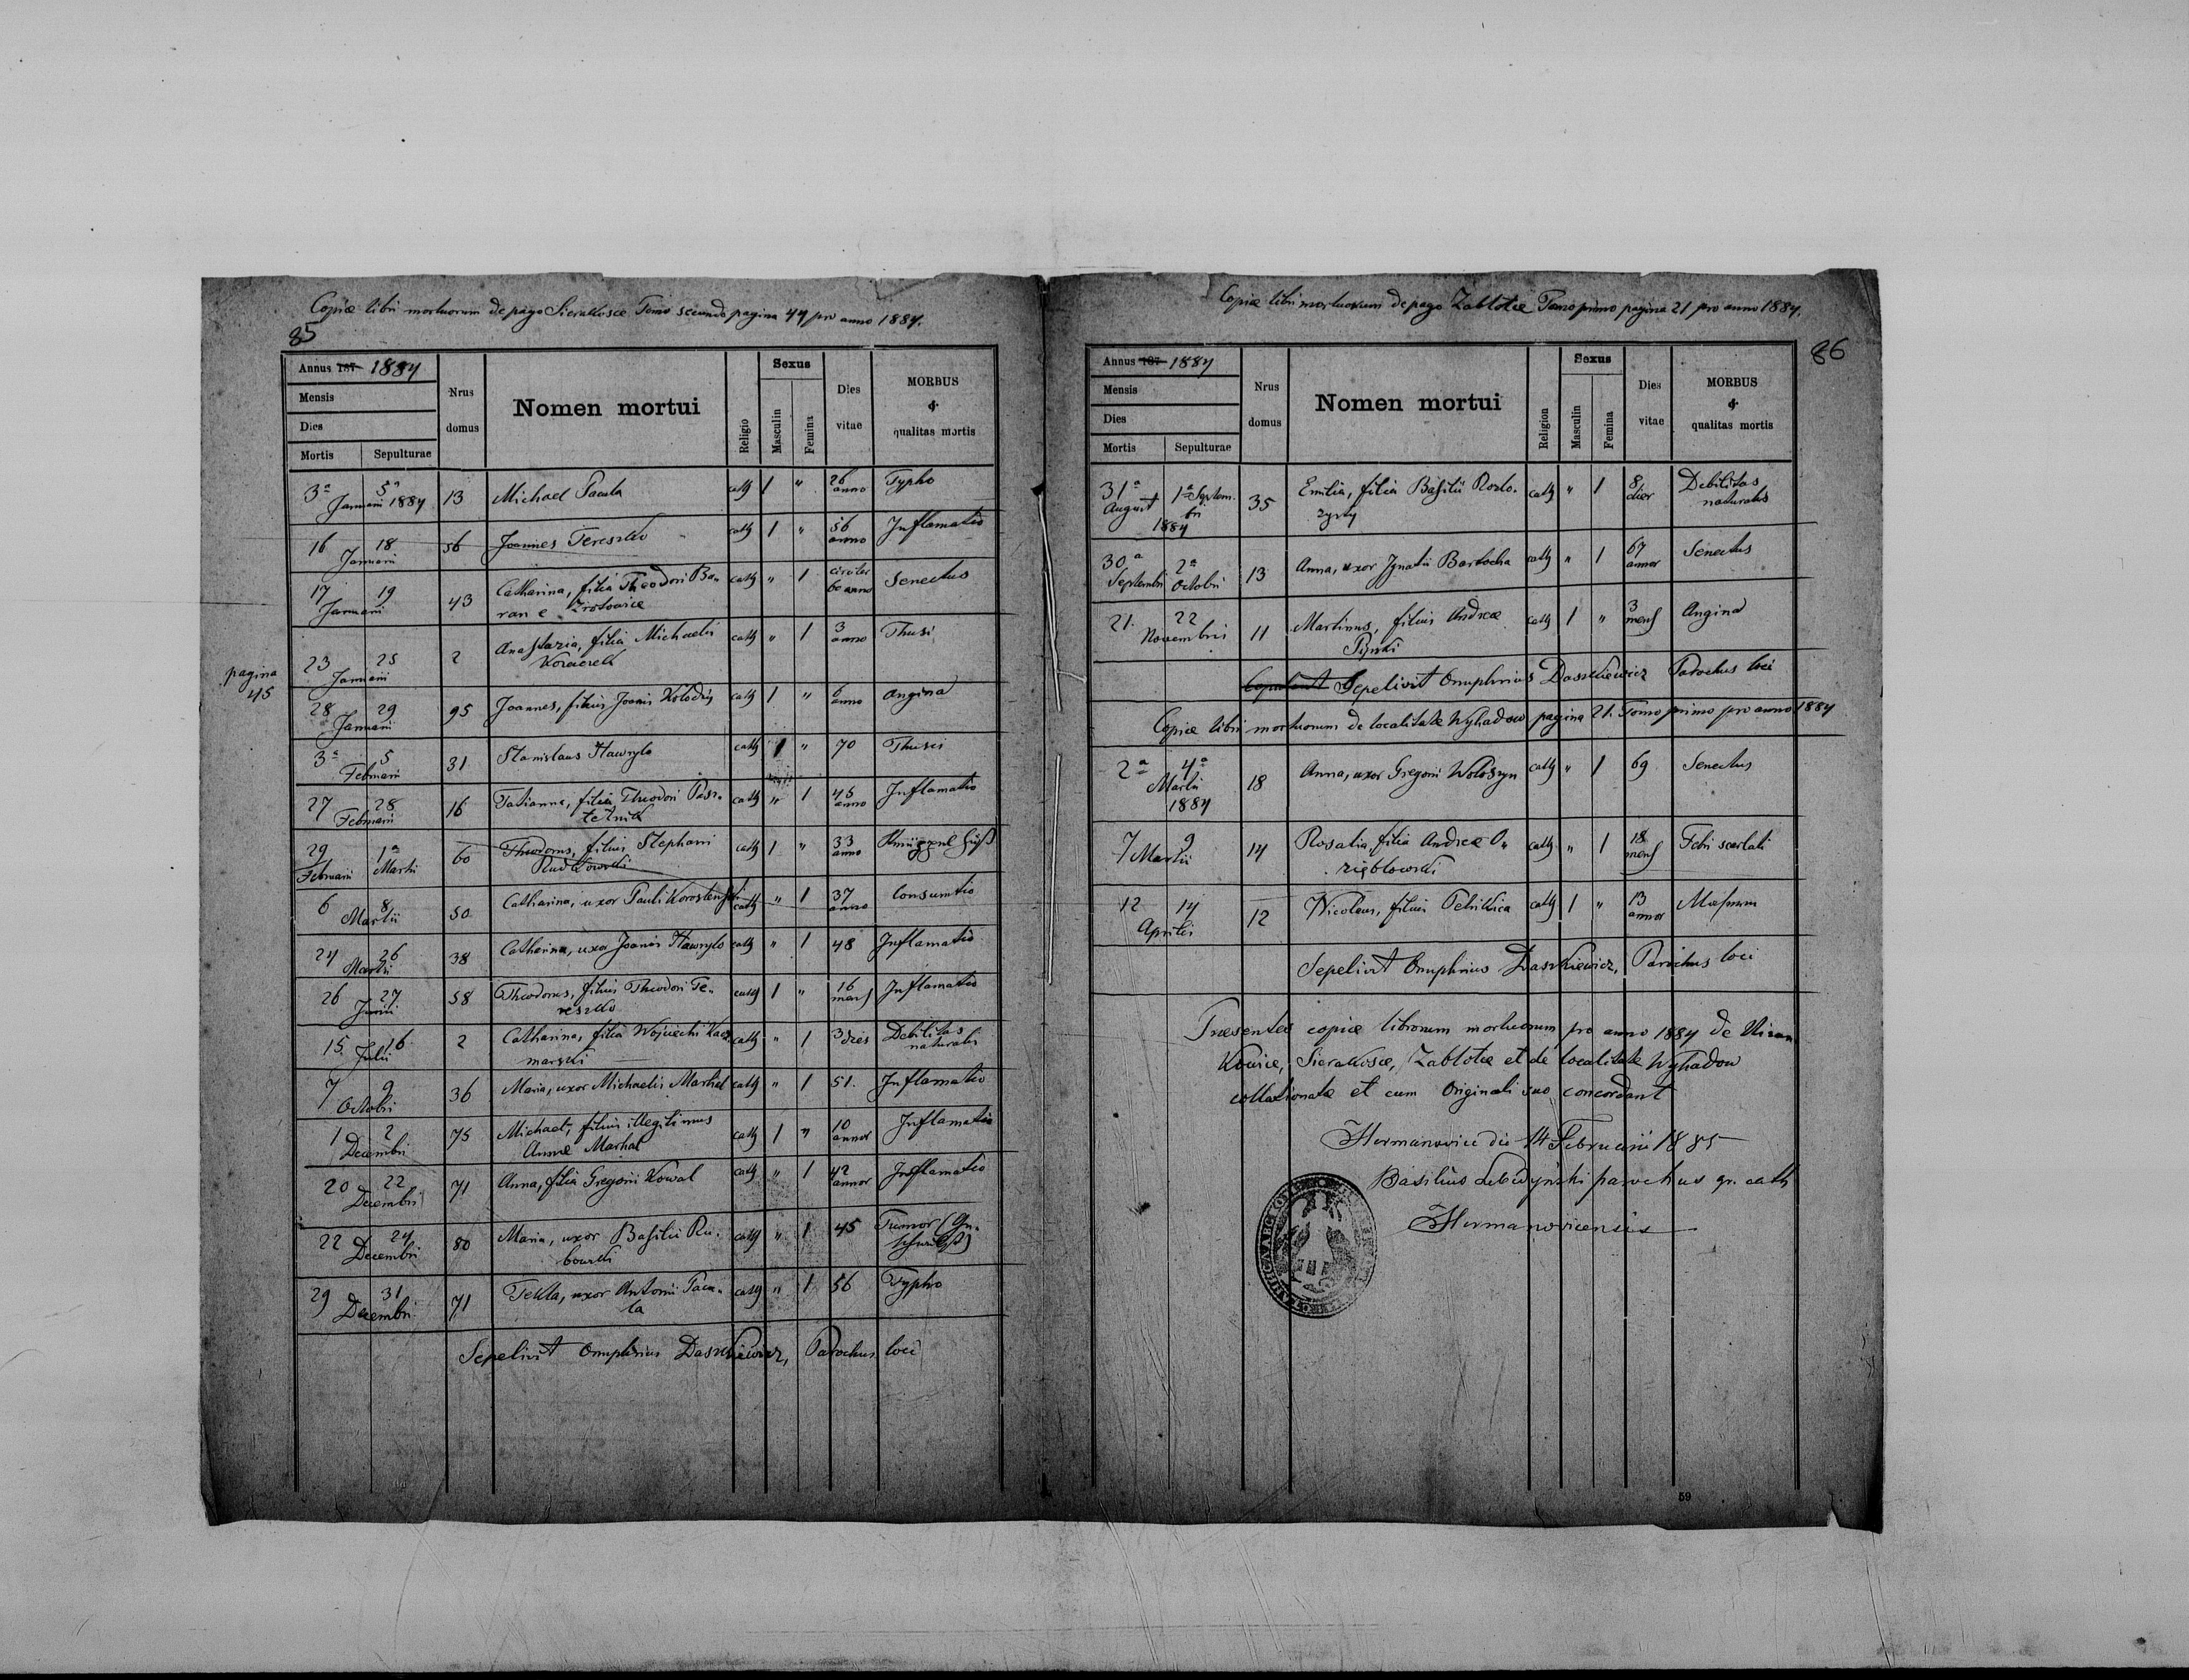 Copiæ libri mortuorum de pago Sierakosce Tomo secundo pagina 44 pro anno 1884.
85
Annus 187 1884
Mensis
Dies
Mortis Sepulturae
Nrus domus
Nomen mortui
Religio
Sexus
Masculin
Femina
Dies vitae
MORBUS
&
qualitas mortis
3a 5a 13 Michael Pacula cath 1 " 26 Typho
Januarii 1884 anno
16 18 56 Joannes Tereszko cath 1 " 56 Inflamatio
Januarii anno
17 19 43 Catharina, filia Theodori Ba- cath " 1 circiter Senectus
Januarii ran e Zrotowice 60 anno
pagina 45
23 25 2 Anastazia, filia Michaelis cath " 1 3 Thusi
Januarii anno
28 29 95 Joannes, filius Joanis Kolodij cath 1 " 6 Angina
Januarii anno
3a 5 31 Stanislaus Hawrylo cath 1 " 70 Thusis
Februarii
27 28 16 Tatianna, filia Theodori cath " 1 45 Inflamatio
Februarii anno
29 1a 60 Theodorus, filius Stephani cath 1 " 33
Februarii Martii anno
6 8 50 Catharina, uxor Pauli cath " 1 37 Consumtio
Martii anno
24 26 38 Catharina, uxor Joanis Hawrylo cath " 1 48 Inflamatio
Martii
26 27 58 Theodorus, filius Theodori Te- cath 1 " 16 Inflamatio
Junii reszko mens
15 16 2 Catharina, filia Wojciechi Kacz- cath " 1 3 dies Debilitas
Julii marski naturalis
7 9 36 Maria, uxor Michaelis Marhal cath " 1 51. Inflamatio
Octobri
1 2 75 Michael, filius illegitimus cath 1 " 10 Inflamatio
Decembri Annæ Marhal annor
20 22 71 Anna, filia Gregorii Kowal cath " 1 42 Inflamatio
Decembri annor
22 24 80 Maria, uxor Basilii cath " 1 45
Decembri
29 31 71 Tekla, uxor Antonii Pacu- cath " 1 56 Typho
Decembri la
Sepelivit Onuphrius Daszkiewicz, Parochus loci
Copiæ libri mortuorum de pago Zablotce Tomo primo pagina 21 pro anno 1884.
86
Annus 187 1884
Mensis
Dies
Mortis Sepulturae
Nrus domus
Nomen mortui
Religion
Sexus
Masculin
Femina
Dies vitae
MORBUS
&
qualitas mortis
31a 1a Septem- 35 Emilia, filia Basilii cath " 1 8 Debilitas
August bri dier naturalis
1884
30a 2a 13 Anna, uxor Ignatii Bartocha cath " 1 67 Senectus
Septembri Octobri annor
21. 22 11 Martinus, filius Andreæ cath 1 " 3 Angina
Novembri mens
Sepelivit Onuphrius Daszkiewicz Parochus loci
Copiæ libri mortuorum de localitate Wyhadow pagina 21. Tomo primo pro anno 1884
2a 4a 18 Anna, uxor Gregorii Woloszyn cath " 1 69 Senectus
Martii
1884
7 9 14 Rosalia, filia Andreæ cath " 1 18 Febri scarlati
Martii mens
12 14 12 Nicolaus, filius cath 1 " 13
Aprilis annor
Sepelivit Onuphrius Daszkiewicz, Parochus loci
Praesentes copiæ librorum mortuorum pro anno 1884 de Nizan-
kowice, Sierakosce, Zablotce et de localitate Wyhadow
collationatæ et cum Originali suo concordant
Hermanovice die 14 Februarii 1885
Basilius Lebedyński parochus gr. cath
Hermanovicensis
59